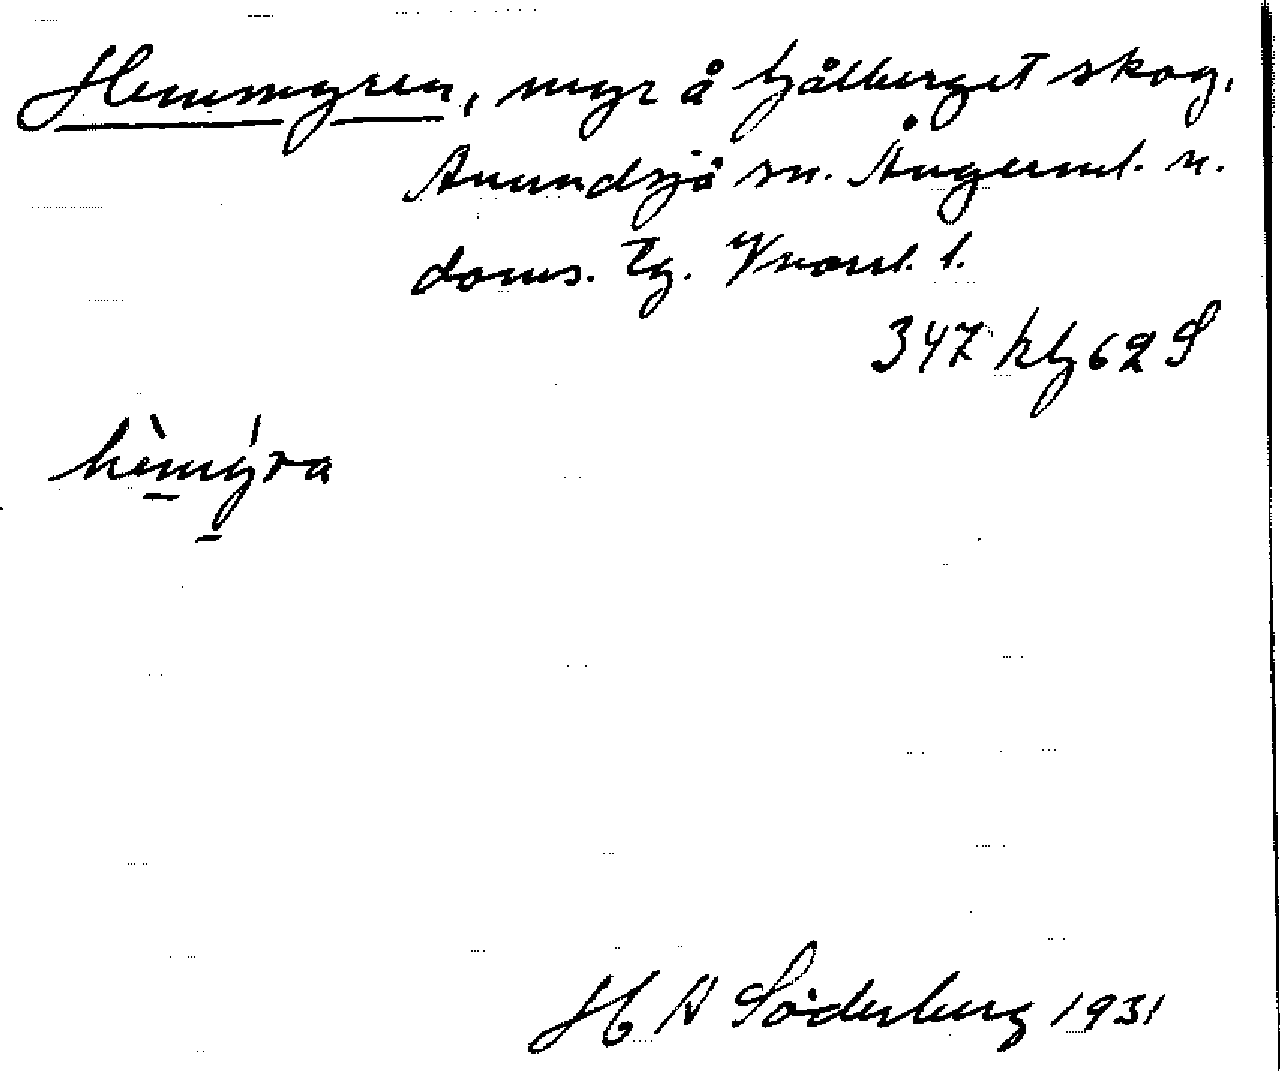 Hemmyren, myr å Hjålberget skog,
Anundsjö sn. Ångerml. n.
doms. Tg. Vnorrl. l.
347 kbg 62 S
hèmýra
H A Söderberg 1931